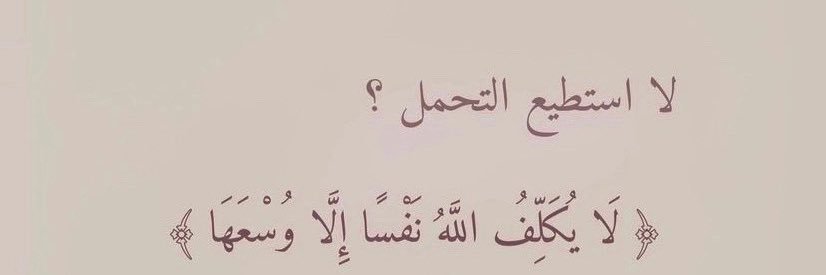 لا استطيع التحمل ؟
﴿ لَا يُكَلِّفُ اللَّهُ نَفْسًا إِلَّا وُسْعَهَا ﴾